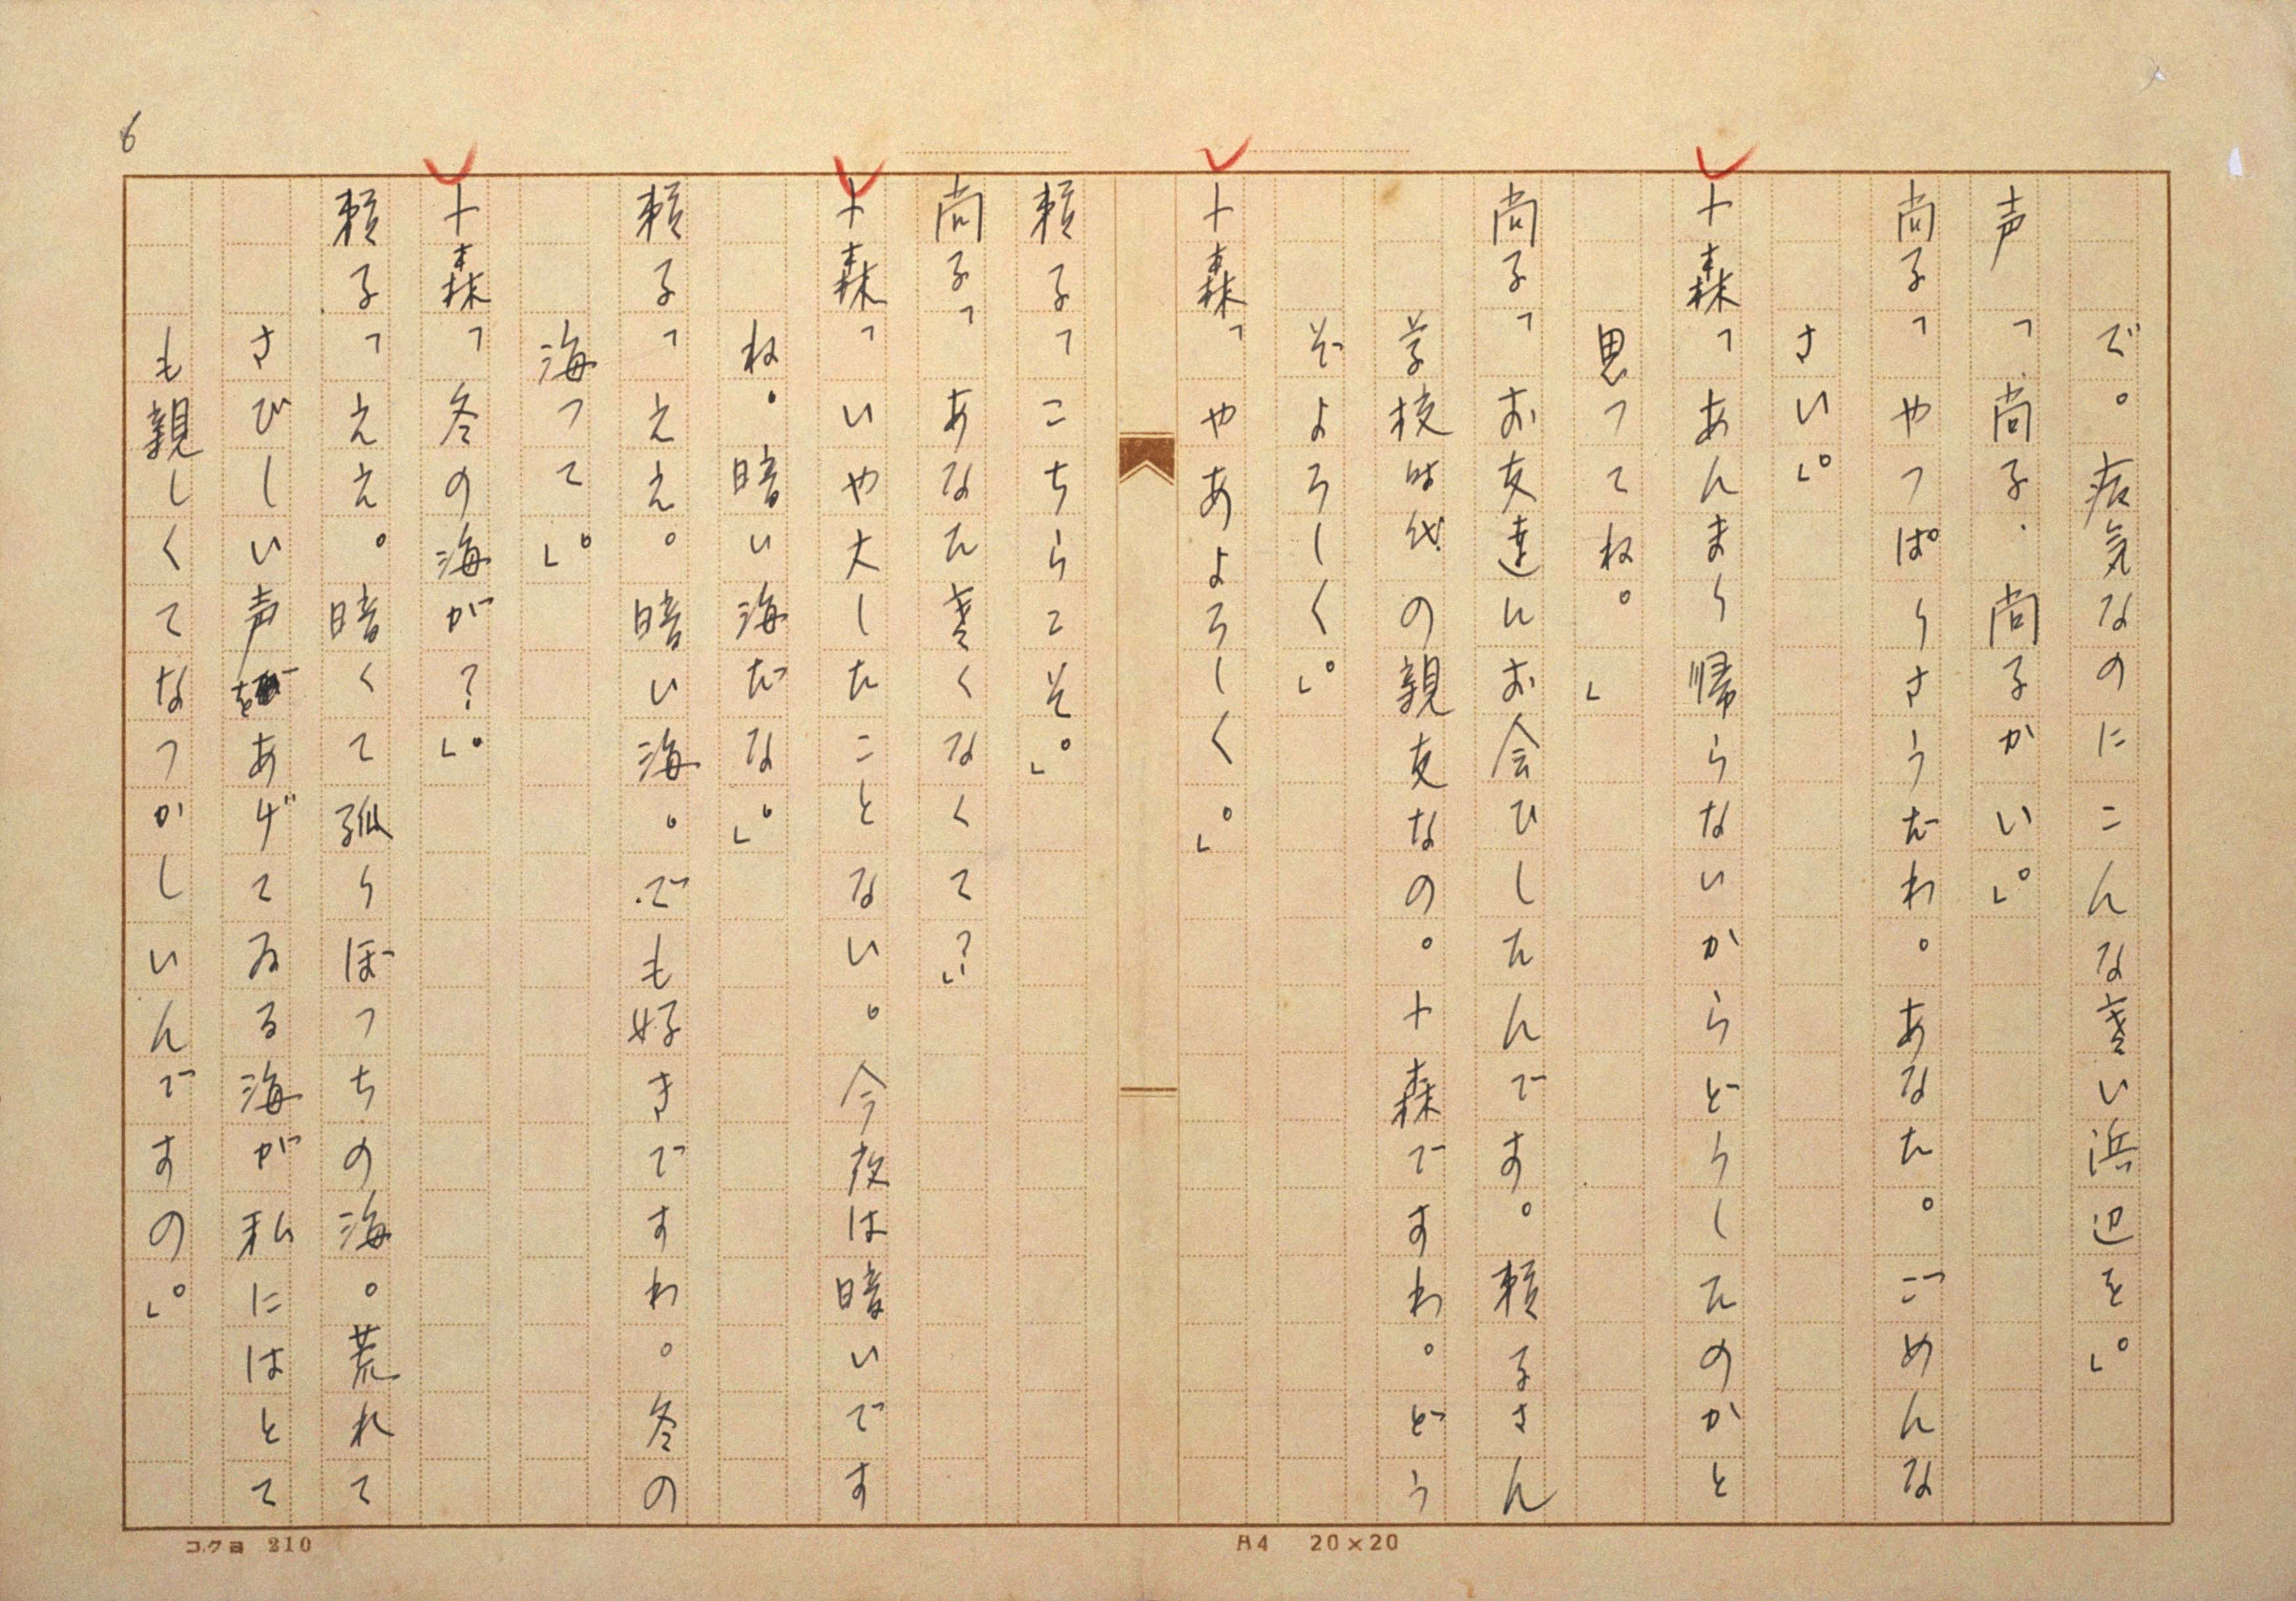 で。病気なのにこんな寒い浜辺を。」
声「尚子、尚子かい。」
尚子「やっぱりさうだわ。あなた。ごめんな
さい。」
十森「あんまり帰らないからどうしたのかと
思ってね。」
尚子「お友達にお会ひしたんです。頼子さん
学校時代の親友なの。十森ですわ。どう
ぞよろしく。」
十森「やあよろしく。」
頼子「こちらこそ。」
尚子「あなた寒くなくて?」
十森「いや大したことない。今夜は暗いです
ね。暗い海だな。」
頼子「ええ。暗い海。でも好きですわ。冬の
海って。」
十森「冬の海が?」
頼子「ええ。暗くて孤りぼっちの海。荒れて
さびしい声をあげてゐる海が私にはとて
も親しくてなつかしいんですの。」
6
コクヨ 210
A4 20×20